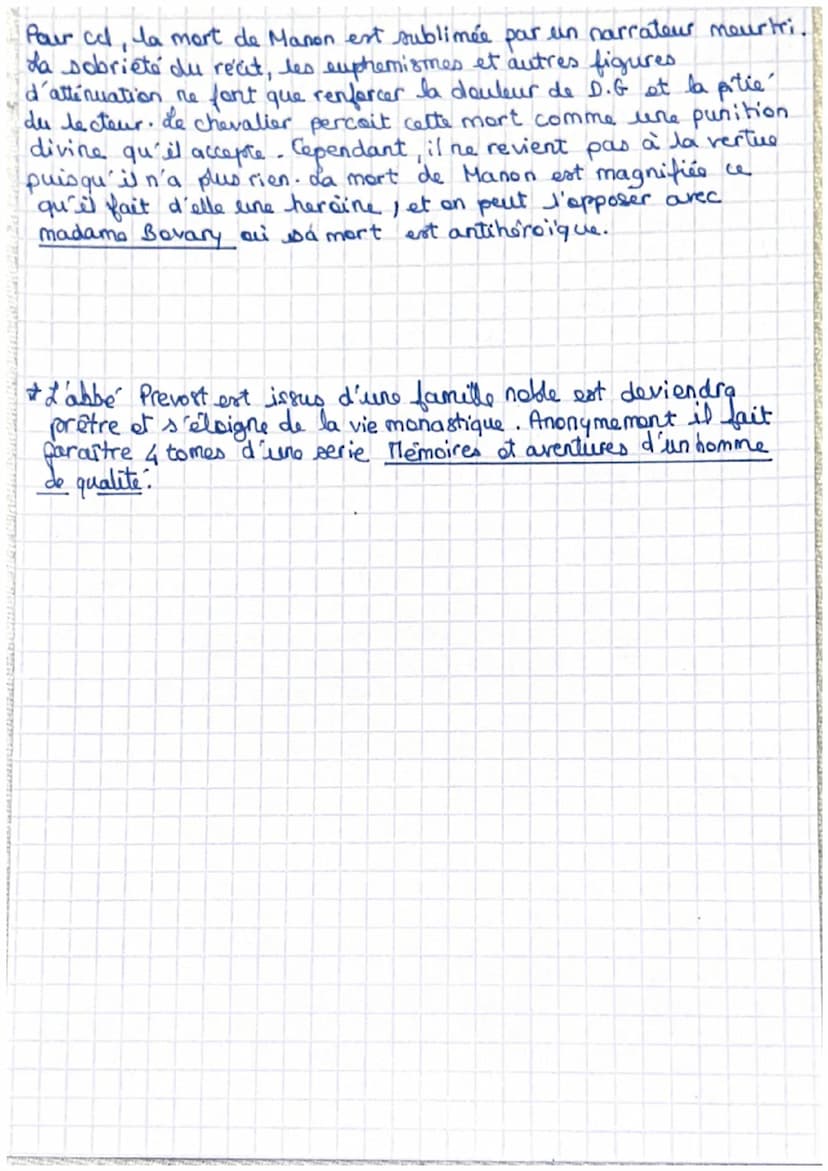 Pour ccl, la mort de Manon est sublimée par un narrateur meurtri.
La sobrieté du récit, les euphemismes et autres figures
d'atténuation ne font que renforcer la douleur de D.G et la pitié
du lecteur. Le chevalier percoit cette mort comme une punition
divine qu'il accepte. Cependant, il ne revient pas à la vertue
puisqu'il n'a plus rien. La mort de Manon est magnifiée ce
qu'il fait d'elle une heroïne, et on peut l'opposer avec
madame Bovary où sa mort est antihéroïque.
* L'abbé Prevost est issus d'une famille noble est deviendra
prêtre et s'éloigne de la vie monastique. Anonymement il fait
paraître 4 tomes d'une serie Mémoires et aventures d'un homme
de qualité.